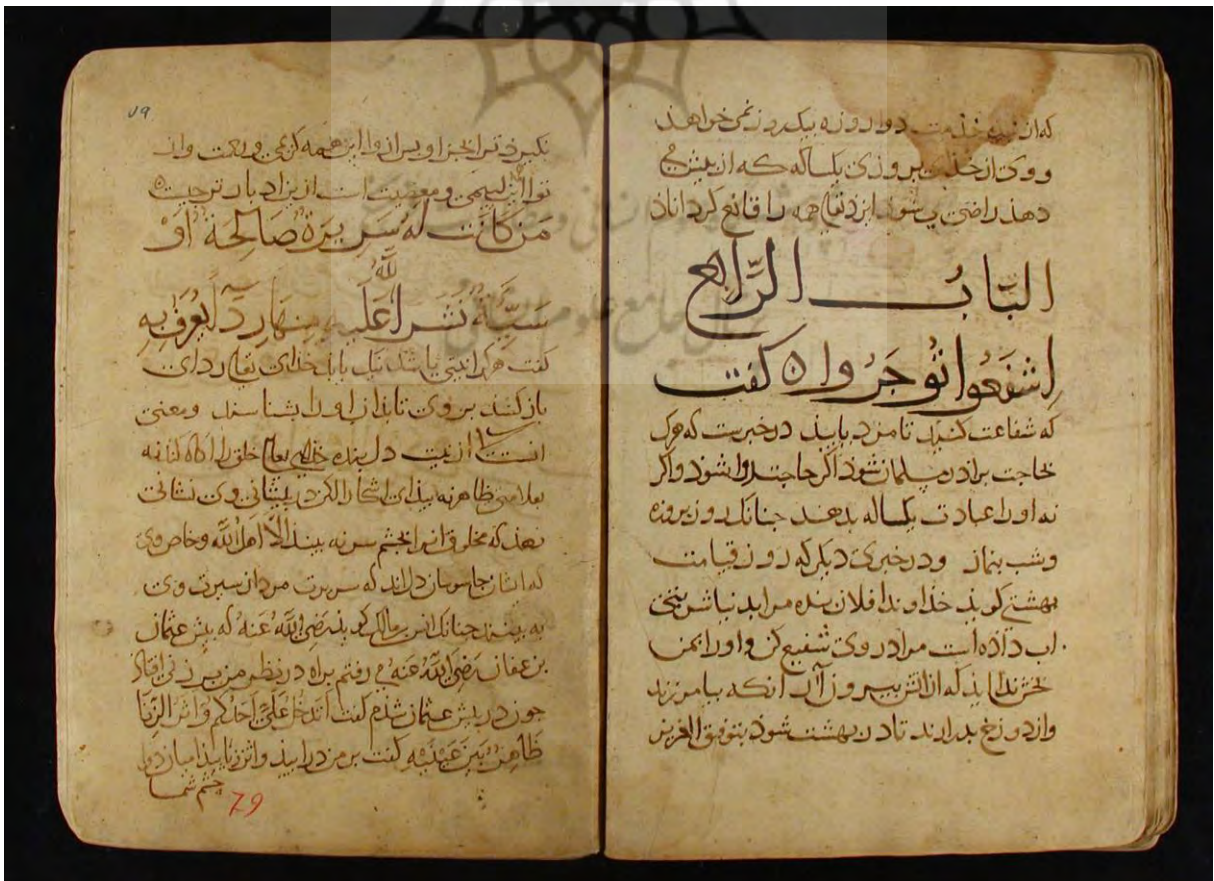 که از بنده خذمت دوازده روزه بیک روز نمی خواهذ
و وی از خذای بروزی یکساله که از پیش می
دهذ راضی می شوذ این دنیا همه را قانع کرداناد
البَابُ الرَّابِع
اِشفَعُوا تُوجَرُوا ه کفت
که شفاعت کنید تا مزد یابید در خبرست که هرک
بحاجت برادر مسلمان شود اکر حاجت روا شود و اکر
نه او را عبادت یکساله بدهند جنانک روز بروزه
وشب بنماز ودر خبری دیکر که روز قیامت
بهشتی کوید خداوندا فلان بنده مرا بدنیا شربتی
اب داده است مرا در وی شفیع کن و او را بمن
بخش ندا آید که از آتش بیرون آر آنکه بیامرزند
واز دوزخ بدر ارند تا در بهشت شود بتوفیق العزیز
۷۹
نکیرد ترا بجز او
مَن كَانَت لَهُ سَرِيرَةٌ صَالِحَةٌ اَوْ
سَيِّئَةٌ نَشَرَ اللهُ عَلَيهِ مِنهَا رِدَاءً يُعرَفُ بِهِ
کفت هرکرا نیتی باشد نیک یا بد خدای تعالی ردای
باز کشد بر وی تا بدان او را بشناسند ومعنی
انست از نیت دل بنده خدای تعالی خلق را اکاه کند نه
بعلامتی ظاهر نه بذای اشکارا لکن در پیشانی وی نشانی
نهد که مخلوقان را بجشم سر نه بیند الا اهل الله وخاص وی
که ایشان جاسوسان دل اند که سریرت مردان سیرت وی
به بینند جنانک انس مالک کوید رَضِیَ اللهُ عَنهُ که پیش عثمان
بن عفان رَضِیَ اللهُ عَنهُ می رفتم براه در نظر من بر زنی افتاد
جون در پیش عثمان شدم کفت اَیَدخُلُ عَلَیَّ اَحَدُکُم وَاَثَرُ الزِّنَا
ظَاهِرٌ بَینَ عَینَیهِ کفت بر من درایید واثر زنا پیدا میان دو
جشم شما
79